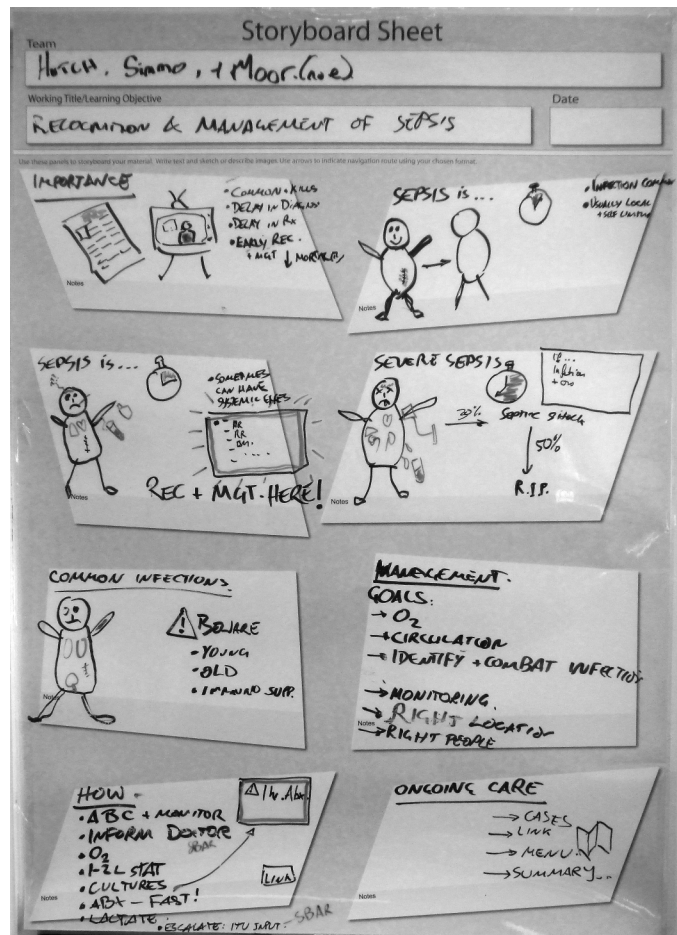 Storyboard Sheet
Team
HUTCH, Simmo, + Moor.(n.e)
Working Title/Learning Objective
Date
RECOGNITION & MANAGEMENT OF SEPSIS
Use these panels to storyboard your material. Write text and sketch or describe images. Use arrows to indicate navigation route using your chosen format.
IMPORTANCE
• COMMON + KILLS
• DELAY IN DIAGNOSIS
• DELAY IN RX
• EARLY REC.
+ MGT ↓ MORTALITY
Notes
SEPSIS IS...
• INFECTION COMMON
• USUALLY LOCAL
+ SELF LIMITING
Notes
SEPSIS IS...
• SOMETIMES
CAN HAVE
SYSTEMIC EFFECTS
- HR
- RR
- . . . . .
REC + MGT. HERE!
Notes
SEVERE SEPSIS
IF...
Infection
+ Ow
30%
Septic shock
50%
R.I.P.
Notes
COMMON INFECTIONS.
BEWARE
• YOUNG
• OLD
• IMMUNO SUPP.
Notes
MANAGEMENT.
GOALS:
→ O2
→ CIRCULATION
→ IDENTIFY + COMBAT INFECTION
→ MONITORING.
→ RIGHT LOCATION
→ RIGHT PEOPLE
Notes
HOW -
• ABC + MONITOR
• INFORM DOCTOR
SBAR
• O2
• 1-2L STAT
• CULTURES
• ABX - FAST!
• LACTATE.
• ESCALATE: ITU INPUT. - SBAR
⚠ 1hr. Abx.
LINK
Notes
ONGOING CARE
→ CASES
→ LINK
→ MENU.
→ SUMMARY...
Notes